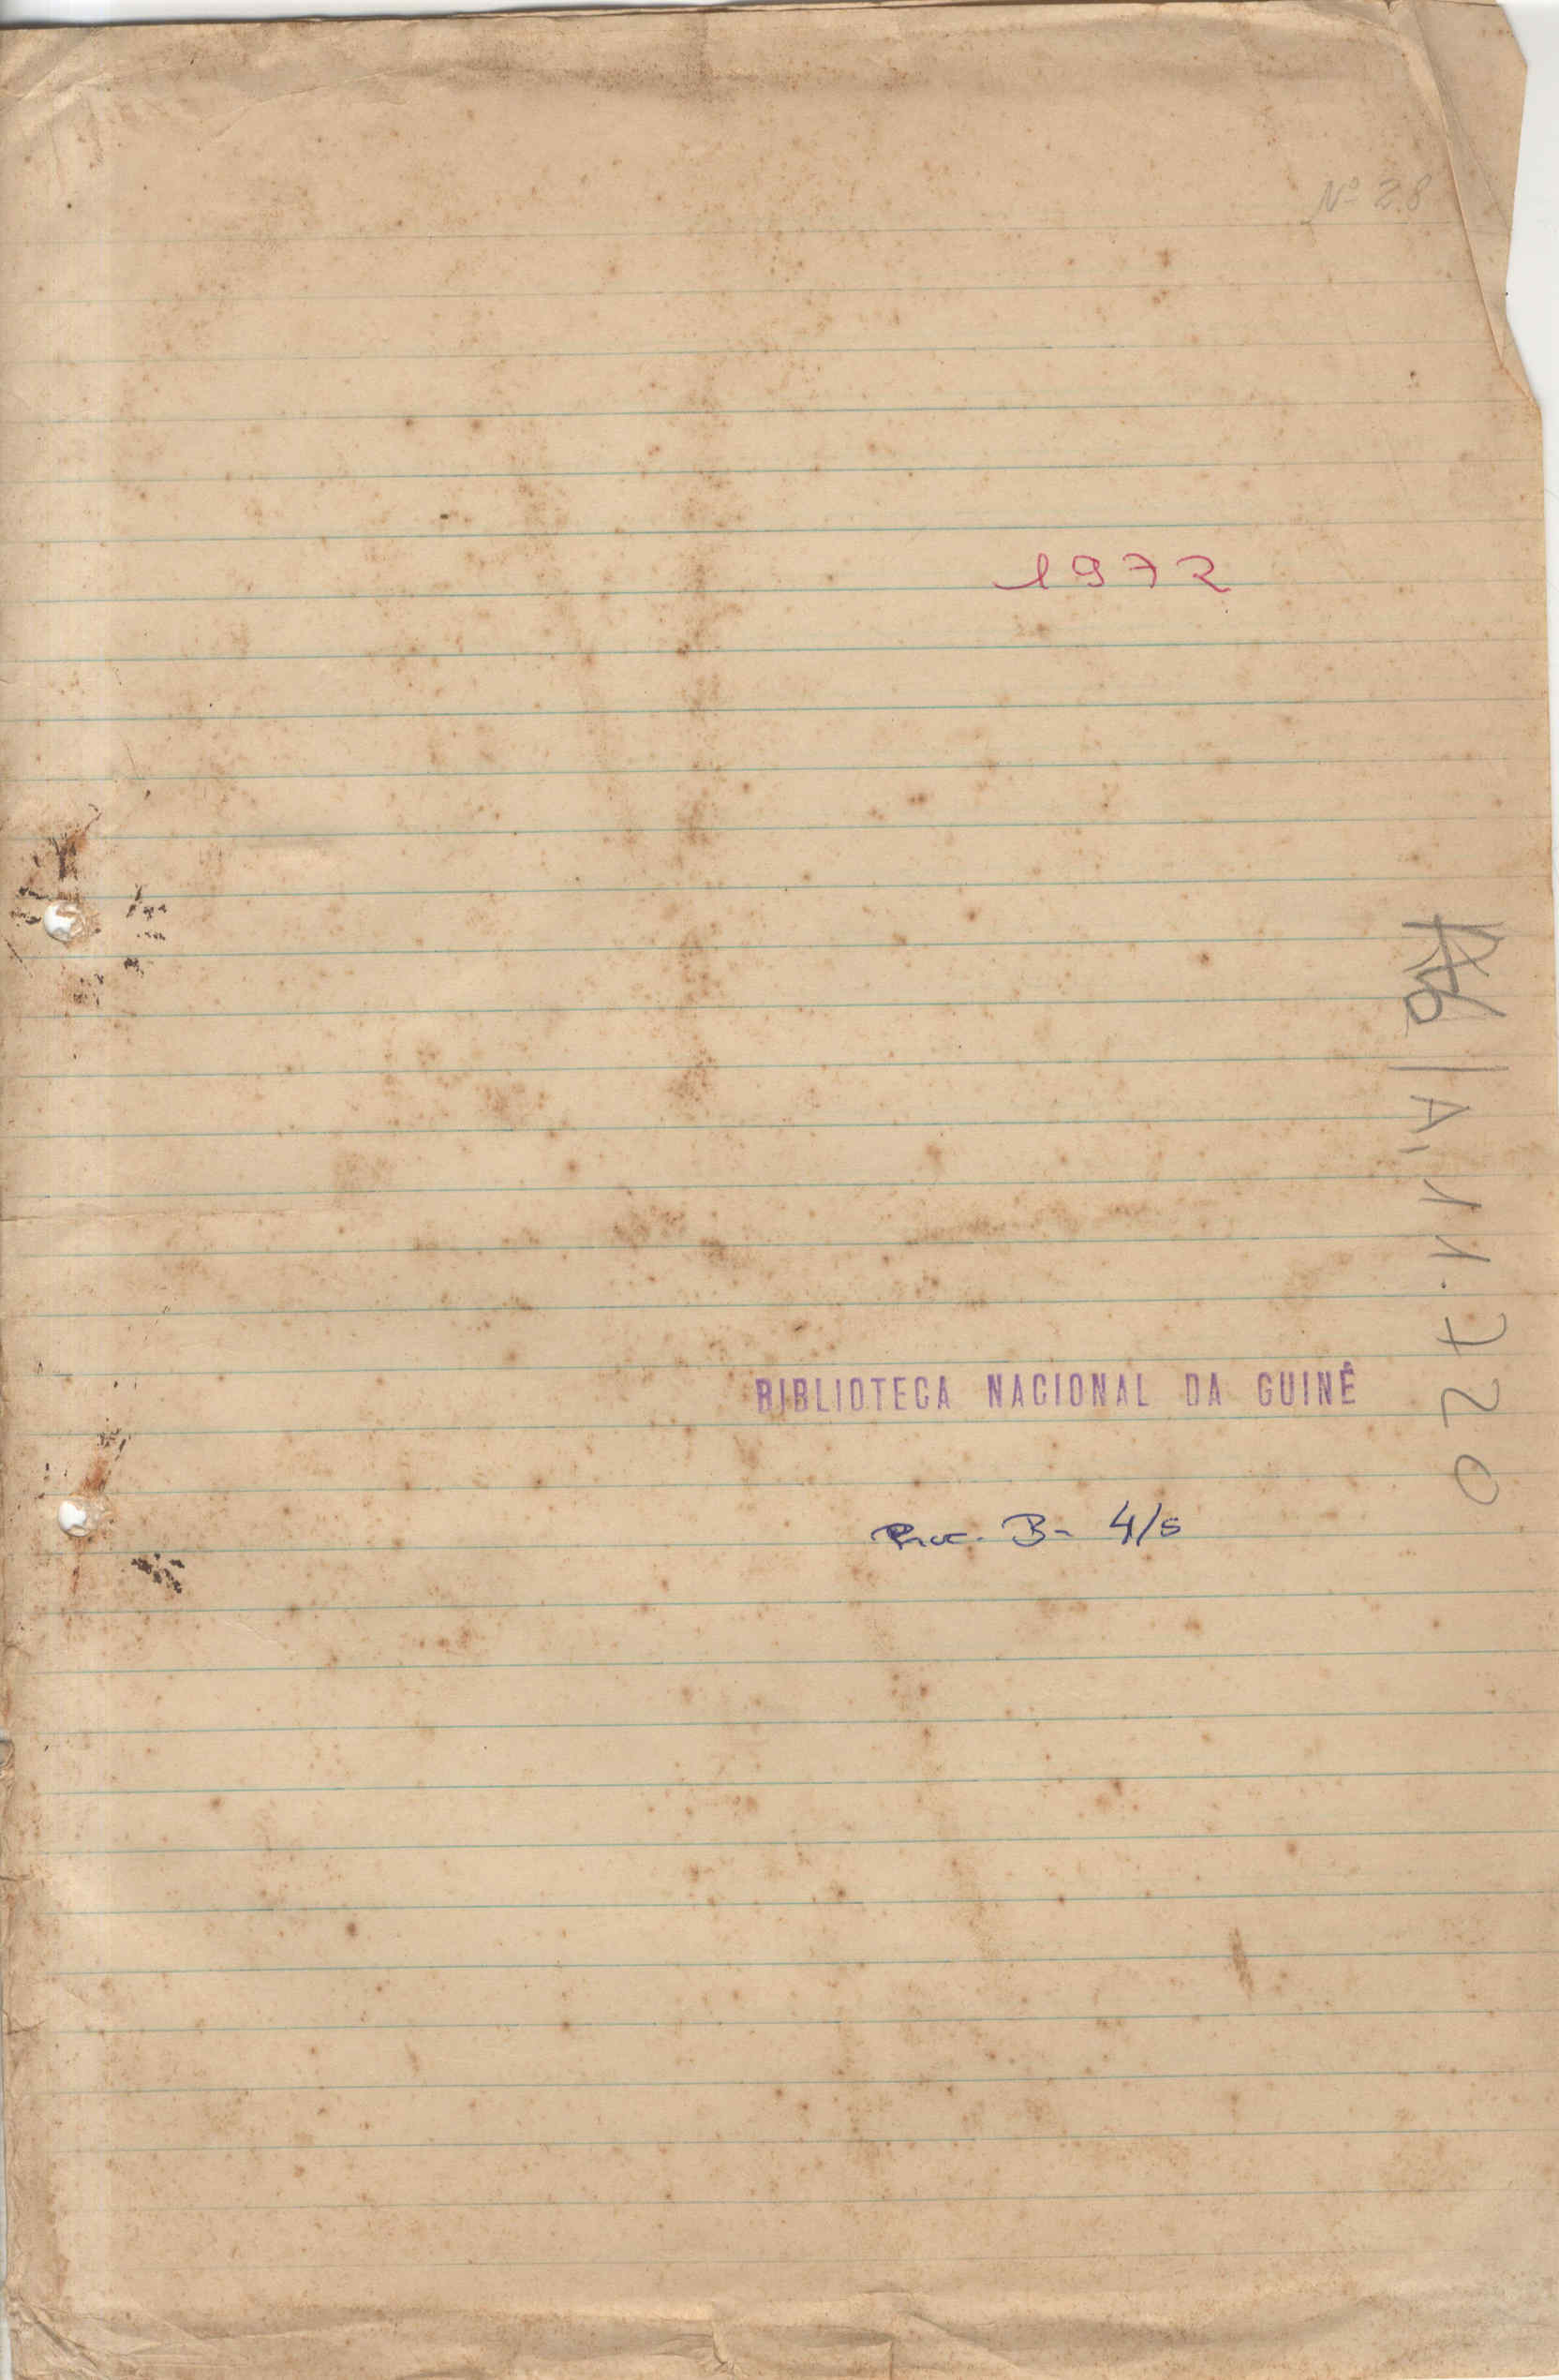 Nº 28
1972
A, 11.720
BIBLIOTECA NACIONAL DA GUINÉ
Proc. B- 4/5